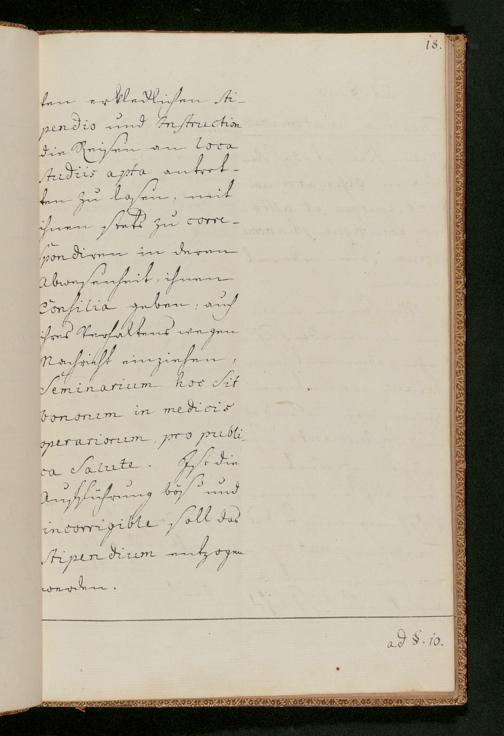 18.
ten erkledlichen Sti-
pendio und Instruction
die Reisen an loca
Studiis apta antret-
ten zu lasen, mit
ihnen stets zu corre-
spondiren in deren
Abwesenheit, ihnen
Consilia geben, auch
ihres Verhaltens wegen
Nachricht einziehen,
Seminarium hoc sit
bonorum in medicis
operariorum, pro publi
ca Salute. Ist die
Aufführung böß und
incorrigible soll das
Stipendium entzogen
werden.
ad §. 10.